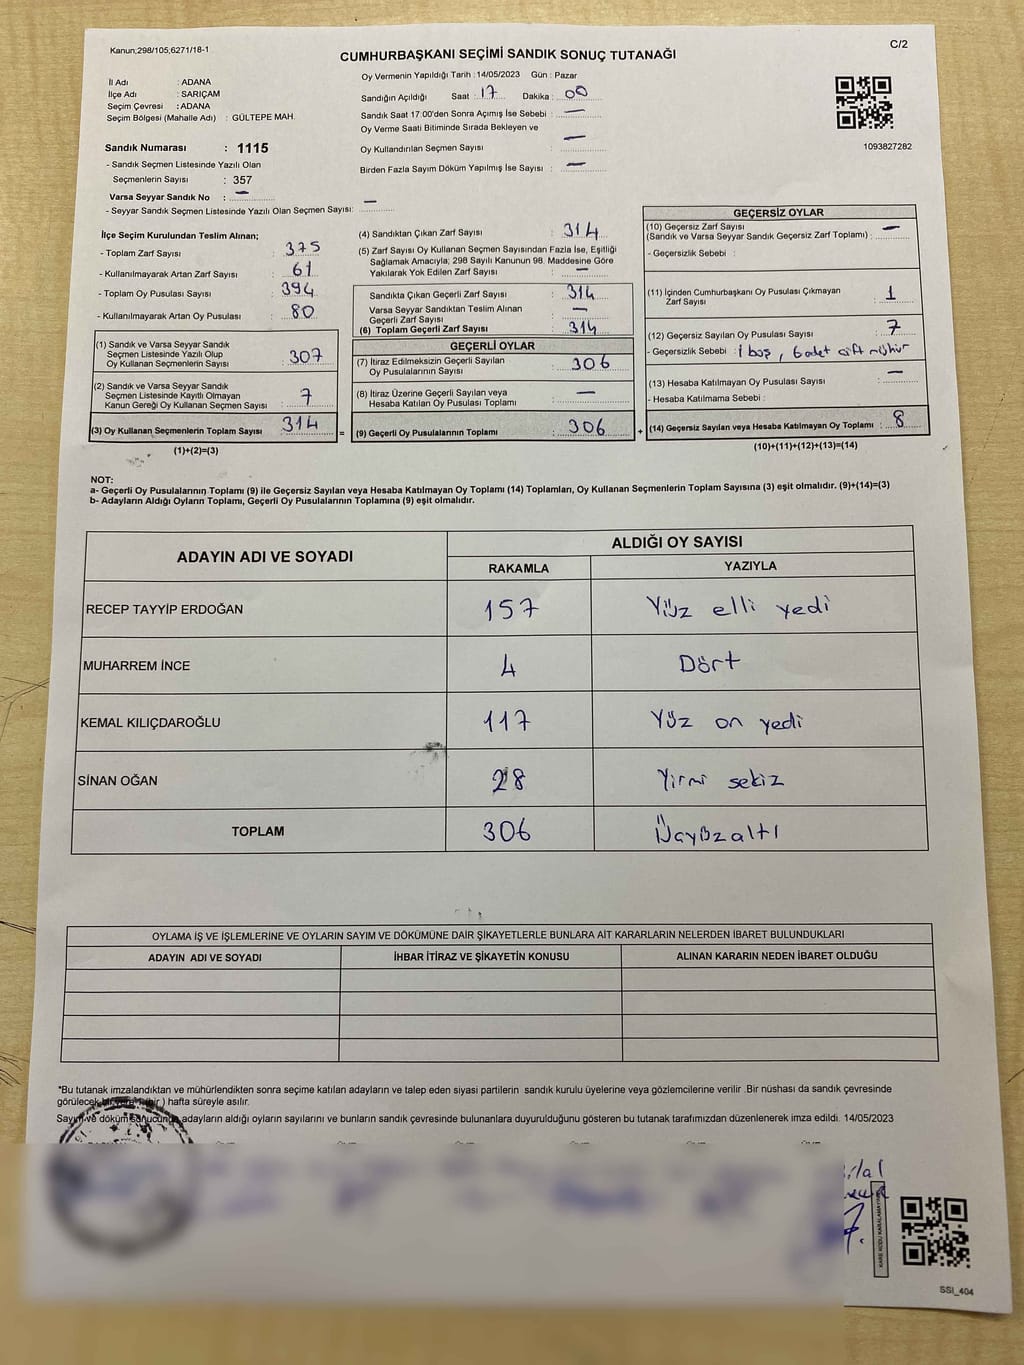 Kanun;298/105,6271/18-1
C/2
CUMHURBAŞKANI SEÇİMİ SANDIK SONUÇ TUTANAĞI
İl Adı : ADANA
İlçe Adı : SARIÇAM
Seçim Çevresi : ADANA
Seçim Bölgesi (Mahalle Adı) : GÜLTEPE MAH.
Sandık Numarası : 1115
- Sandık Seçmen Listesinde Yazılı Olan
Seçmenlerin Sayısı : 357
Varsa Seyyar Sandık No : —
- Seyyar Sandık Seçmen Listesinde Yazılı Olan Seçmen Sayısı: —
Oy Vermenin Yapıldığı Tarih : 14/05/2023 Gün : Pazar
Sandığın Açıldığı Saat : 17 Dakika : 00
Sandık Saat 17:00'den Sonra Açımış İse Sebebi : —
Oy Verme Saati Bitiminde Sırada Bekleyen ve
Oy Kullandırılan Seçmen Sayısı : —
Birden Fazla Sayım Döküm Yapılmış İse Sayısı : —
1093827282
İlçe Seçim Kurulundan Teslim Alınan;
- Toplam Zarf Sayısı : 375
- Kullanılmayarak Artan Zarf Sayısı : 61
- Toplam Oy Pusulası Sayısı : 394
- Kullanılmayarak Artan Oy Pusulası : 80
(1) Sandık ve Varsa Seyyar Sandık
Seçmen Listesinde Yazılı Olup
Oy Kullanan Seçmenlerin Sayısı : 307
(2) Sandık ve Varsa Seyyar Sandık
Seçmen Listesinde Kayıtlı Olmayan
Kanun Gereği Oy Kullanan Seçmen Sayısı : 7
(3) Oy Kullanan Seçmenlerin Toplam Sayısı : 314 =
(1)+(2)=(3)
(4) Sandıktan Çıkan Zarf Sayısı : 314
(5) Zarf Sayısı Oy Kullanan Seçmen Sayısından Fazla İse, Eşitliği
Sağlamak Amacıyla; 298 Sayılı Kanunun 98. Maddesine Göre
Yakılarak Yok Edilen Zarf Sayısı : —
Sandıkta Çıkan Geçerli Zarf Sayısı : 314
Varsa Seyyar Sandıktan Teslim Alınan
Geçerli Zarf Sayısı : —
(6) Toplam Geçerli Zarf Sayısı : 314
GEÇERLİ OYLAR
(7) İtiraz Edilmeksizin Geçerli Sayılan
Oy Pusulalarının Sayısı : 306
(8) İtiraz Üzerine Geçerli Sayılan veya
Hesaba Katılan Oy Pusulası Toplamı : —
(9) Geçerli Oy Pusulalarının Toplamı : 306 +
GEÇERSİZ OYLAR
(10) Geçersiz Zarf Sayısı
(Sandık ve Varsa Seyyar Sandık Geçersiz Zarf Toplamı) : —
- Geçersizlik Sebebi :
(11) İçinden Cumhurbaşkanı Oy Pusulası Çıkmayan
Zarf Sayısı : 1
(12) Geçersiz Sayılan Oy Pusulası Sayısı : 7
- Geçersizlik Sebebi : 1 boş, 6 adet çift mühür
(13) Hesaba Katılmayan Oy Pusulası Sayısı : —
- Hesaba Katılmama Sebebi :
(14) Geçersiz Sayılan veya Hesaba Katılmayan Oy Toplamı : 8
(10)+(11)+(12)+(13)=(14)
NOT:
a- Geçerli Oy Pusulalarının Toplamı (9) ile Geçersiz Sayılan veya Hesaba Katılmayan Oy Toplamı (14) Toplamları, Oy Kullanan Seçmenlerin Toplam Sayısına (3) eşit olmalıdır. (9)+(14)=(3)
b- Adayların Aldığı Oyların Toplamı, Geçerli Oy Pusulalarının Toplamına (9) eşit olmalıdır.
ADAYIN ADI VE SOYADI
ALDIĞI OY SAYISI
RAKAMLA YAZIYLA
RECEP TAYYİP ERDOĞAN 157 Yüz elli yedi
MUHARREM İNCE 4 Dört
KEMAL KILIÇDAROĞLU 117 Yüz on yedi
SİNAN OĞAN 28 Yirmi sekiz
TOPLAM 306 Üçyüzaltı
OYLAMA İŞ VE İŞLEMLERİNE VE OYLARIN SAYIM VE DÖKÜMÜNE DAİR ŞİKAYETLERLE BUNLARA AİT KARARLARIN NELERDEN İBARET BULUNDUKLARI
ADAYIN ADI VE SOYADI İHBAR İTİRAZ VE ŞİKAYETİN KONUSU ALINAN KARARIN NEDEN İBARET OLDUĞU
*Bu tutanak imzalandıktan ve mühürlendikten sonra seçime katılan adayların ve talep eden siyasi partilerin sandık kurulu üyelerine veya gözlemcilerine verilir .Bir nüshası da sandık çevresinde
görülecek bir yere ( bir ) hafta süreyle asılır.
Sayım ve döküm sonucunda adayların aldığı oyların sayılarını ve bunların sandık çevresinde bulunanlara duyurulduğunu gösteren bu tutanak tarafımızdan düzenlenerek imza edildi. 14/05/2023
KARE KODU KARALAMAYINIZ
SSI_404